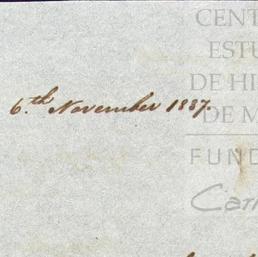 CENT
ESTU
DE HI
DE M
6.th November 1837.
FUND
Car